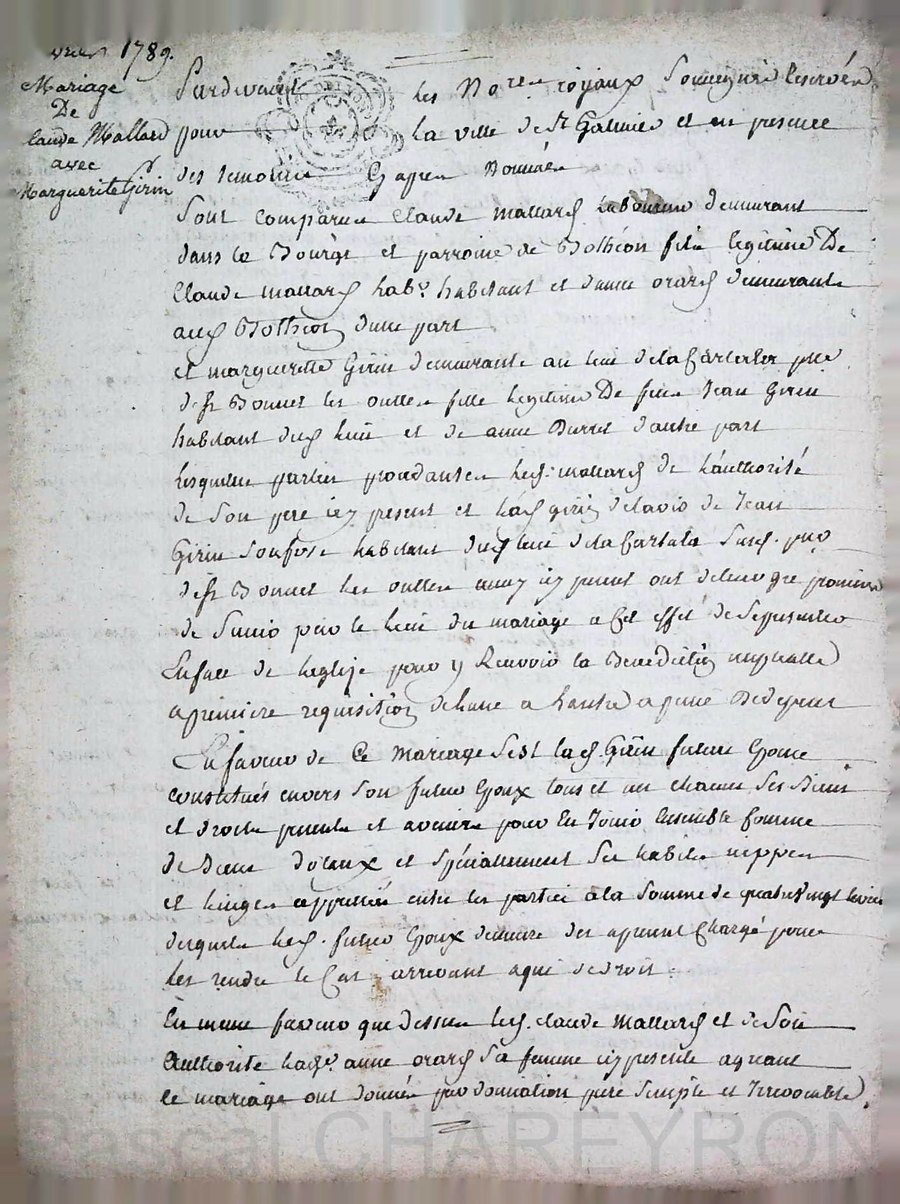 1789.
Mariage
De
Claude Mallard
avec
Marguerite Girin
Pardevant les No.res royaux Soussignés Reservés
pour la ville de St Galmier et en presence
des temoins Cy apres Nommés
Sont comparus Claude mallard laboureur demeurant
dans le Bourg et parroisse de Bothéon fils legitime De
Claude mallard lab.r habitant et d'anne orard demeurants
aud Bothéon d'une part
et margueritte Girin demeurante au lieu de la
de st Bonnet les oulles fille legitime De feu Jean Girin
habitant dud lieu et de anne d'autre part
Lesquelles parties procedantes led. mallard de l'authorité
de Son pere icy present et lad girin de l'avis de Jean
Girin Son habitant dud lieu de la Susd.
de st Bonnet les oulles aussy icy present ont de leur gré promis
de S'unir par le lien du mariage a Cet effet de Se presenter
En face de l'eglise pour y Recevoir la Benediction nuptialle
a premiere requisition de l'une a l'autre a peine De depens
En faveur de Ce mariage S'est lad. Girin future Epouse
constituée envers Son futur Epoux tous et un chacun Ses Biens
et droits presents et avenirs pour En Jouir Ensemble Comme
de Biens dotaux et Spécialement Ses habits nippes
et linges appretiés entre les parties a la Somme de quatrevingt livres
desquels led. futur Epoux demeure des apresent Chargé pour
les rendre le Cas arrivant a qui de droit.
En meme faveur que dessus led. claude mallard et de Son
Authorité lad.e anne orard Sa femme icy presente agreant
le mariage ont donnés par donnation pure Simple et Irrevocable
Pascal CHAREYRON